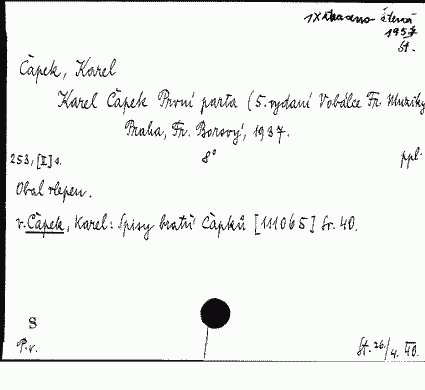 1X ztraceno čtená
1957
St.
Čapek, Karel
Karel Čapek První parta (5. vydaní V obálce Fr. Muziky
Praha, Fr. Borový, 1937.
253, [II] s. 8° ppl.
Obal vlepen.
v. Čapek, Karel: Spisy bratří Čapků [111065] Sv. 40.
S
P. v. St. 26/4. 40.